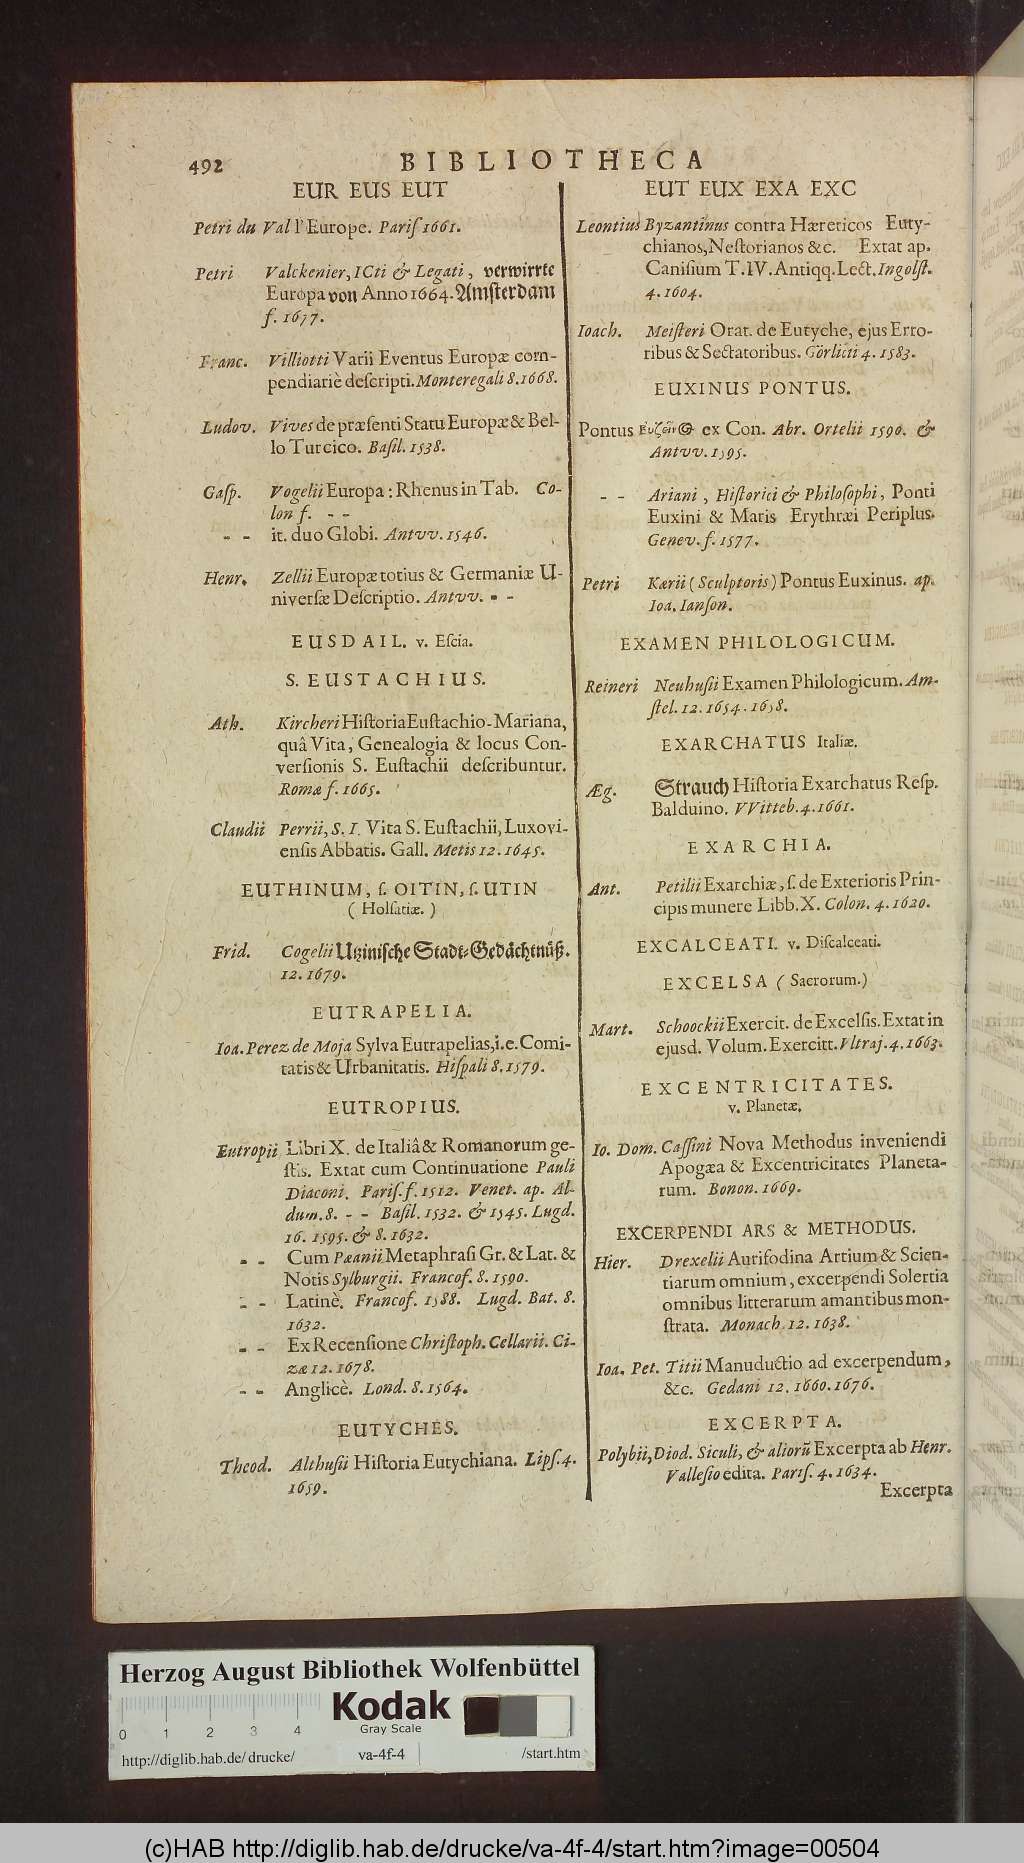 492
BIBLIOTHECA
EUR EUS EUT
Petri du Val l'Europe. Pariſ 1661.
Petri Valckenier, ICti & Legati, verwirrte
Europa von Anno 1664. Amſterdam
f. 1677.
Franc. Villiotti Varii Eventus Europæ com-
pendiariè deſcripti. Monteregali 8. 1668.
Ludov. Vives de præſenti Statu Europæ & Bel-
lo Turcico. Baſil. 1538.
Gaſp. Vogelii Europa: Rhenus in Tab. Co-
lon f. - -
- - it. duo Globi. Antvv. 1546.
Henr. Zellii Europæ totius & Germaniæ U-
niverſæ Deſcriptio. Antvv. - -
EUSDAIL. v. Eſcia.
S. EUSTACHIUS.
Ath. Kircheri Hiſtoria Euſtachio-Mariana,
quâ Vita, Genealogia & locus Con-
verſionis S. Euſtachii deſcribuntur.
Romæ f. 1665.
Claudii Perrii, S. I. Vita S. Euſtachii, Luxovi-
enſis Abbatis. Gall. Metis 12. 1645.
EUTHINUM, ſ. OITIN, ſ. UTIN
( Holſatiæ. )
Frid. Cogelii Utzinische Stadt-Gedächtnüß.
12. 1679.
EUTRAPELIA.
Ioa. Perez de Moja Sylva Eutrapelias, i. e. Comi-
tatis & Urbanitatis. Hiſpali 8. 1579.
EUTROPIUS.
Eutropii Libri X. de Italiâ & Romanorum ge-
ſtis. Extat cum Continuatione Pauli
Diaconi. Pariſ. f. 1512. Venet. ap. Al-
dum. 8. - - Baſil. 1532. & 1545. Lugd.
16. 1595. & 8. 1632.
- - Cum Pæanii Metaphraſi Gr. & Lat. &
Notis Sylburgii. Francof. 8. 1590.
- - Latinè. Francof. 1588. Lugd. Bat. 8.
1632.
- - Ex Recenſione Chriſtoph. Cellarii. Ci-
zæ 12. 1678.
- - Anglicè. Lond. 8. 1564.
EUTYCHES.
Theod. Althuſii Hiſtoria Eutychiana. Lipſ. 4.
1659.
EUT EUX EXA EXC
Leontius Byzantinus contra Hæreticos Euty-
chianos, Neſtorianos &c. Extat ap.
Caniſium T. IV. Antiqq. Lect. Ingolſt.
4. 1604.
Ioach. Meiſteri Orat. de Eutyche, ejus Erro-
ribus & Sectatoribus. Görlicii 4. 1583.
EUXINUS PONTUS.
Pontus ex Con. Abr. Ortelii 1590. &
Antvv. 1595.
- - Ariani, Hiſtorici & Philoſophi, Ponti
Euxini & Maris Erythræi Periplus.
Genev. f. 1577.
Petri Kærii (Sculptoris) Pontus Euxinus. ap.
Ioa. Ianſon.
EXAMEN PHILOLOGICUM.
Reineri Neuhuſii Examen Philologicum. Am-
ſtel. 12. 1654. 1658.
EXARCHATUS Italiæ.
Æg. Strauch Hiſtoria Exarchatus Reſp.
Balduino. VVitteb. 4. 1661.
EXARCHIA.
Ant. Petilii Exarchiæ, ſ. de Exterioris Prin-
cipis munere Libb. X. Colon. 4. 1620.
EXCALCEATI. v. Diſcalceati.
EXCELSA ( Sacrorum.)
Mart. Schoockii Exercit. de Excelſis. Extat in
ejusd. Volum. Exercitt. Vltraj. 4. 1663.
EXCENTRICITATES.
v. Planetæ.
Io. Dom. Caſſini Nova Methodus inveniendi
Apogæa & Excentricitates Planeta-
rum. Bonon. 1669.
EXCERPENDI ARS & METHODUS.
Hier. Drexelii Aurifodina Artium & Scien-
tiarum omnium, excerpendi Solertia
omnibus litterarum amantibus mon-
ſtrata. Monach. 12. 1638.
Ioa. Pet. Titii Manuductio ad excerpendum,
&c. Gedani 12. 1660. 1676.
EXCERPTA.
Polybii, Diod. Siculi, & aliorũ Excerpta ab Henr.
Valleſio edita. Pariſ. 4. 1634.
Excerpta
Herzog August Bibliothek Wolfenbüttel
Kodak
Gray Scale
0 1 2 3 4
http://diglib.hab.de/drucke/ va-4f-4 /start.htm
(c)HAB http://diglib.hab.de/drucke/va-4f-4/start.htm?image=00504